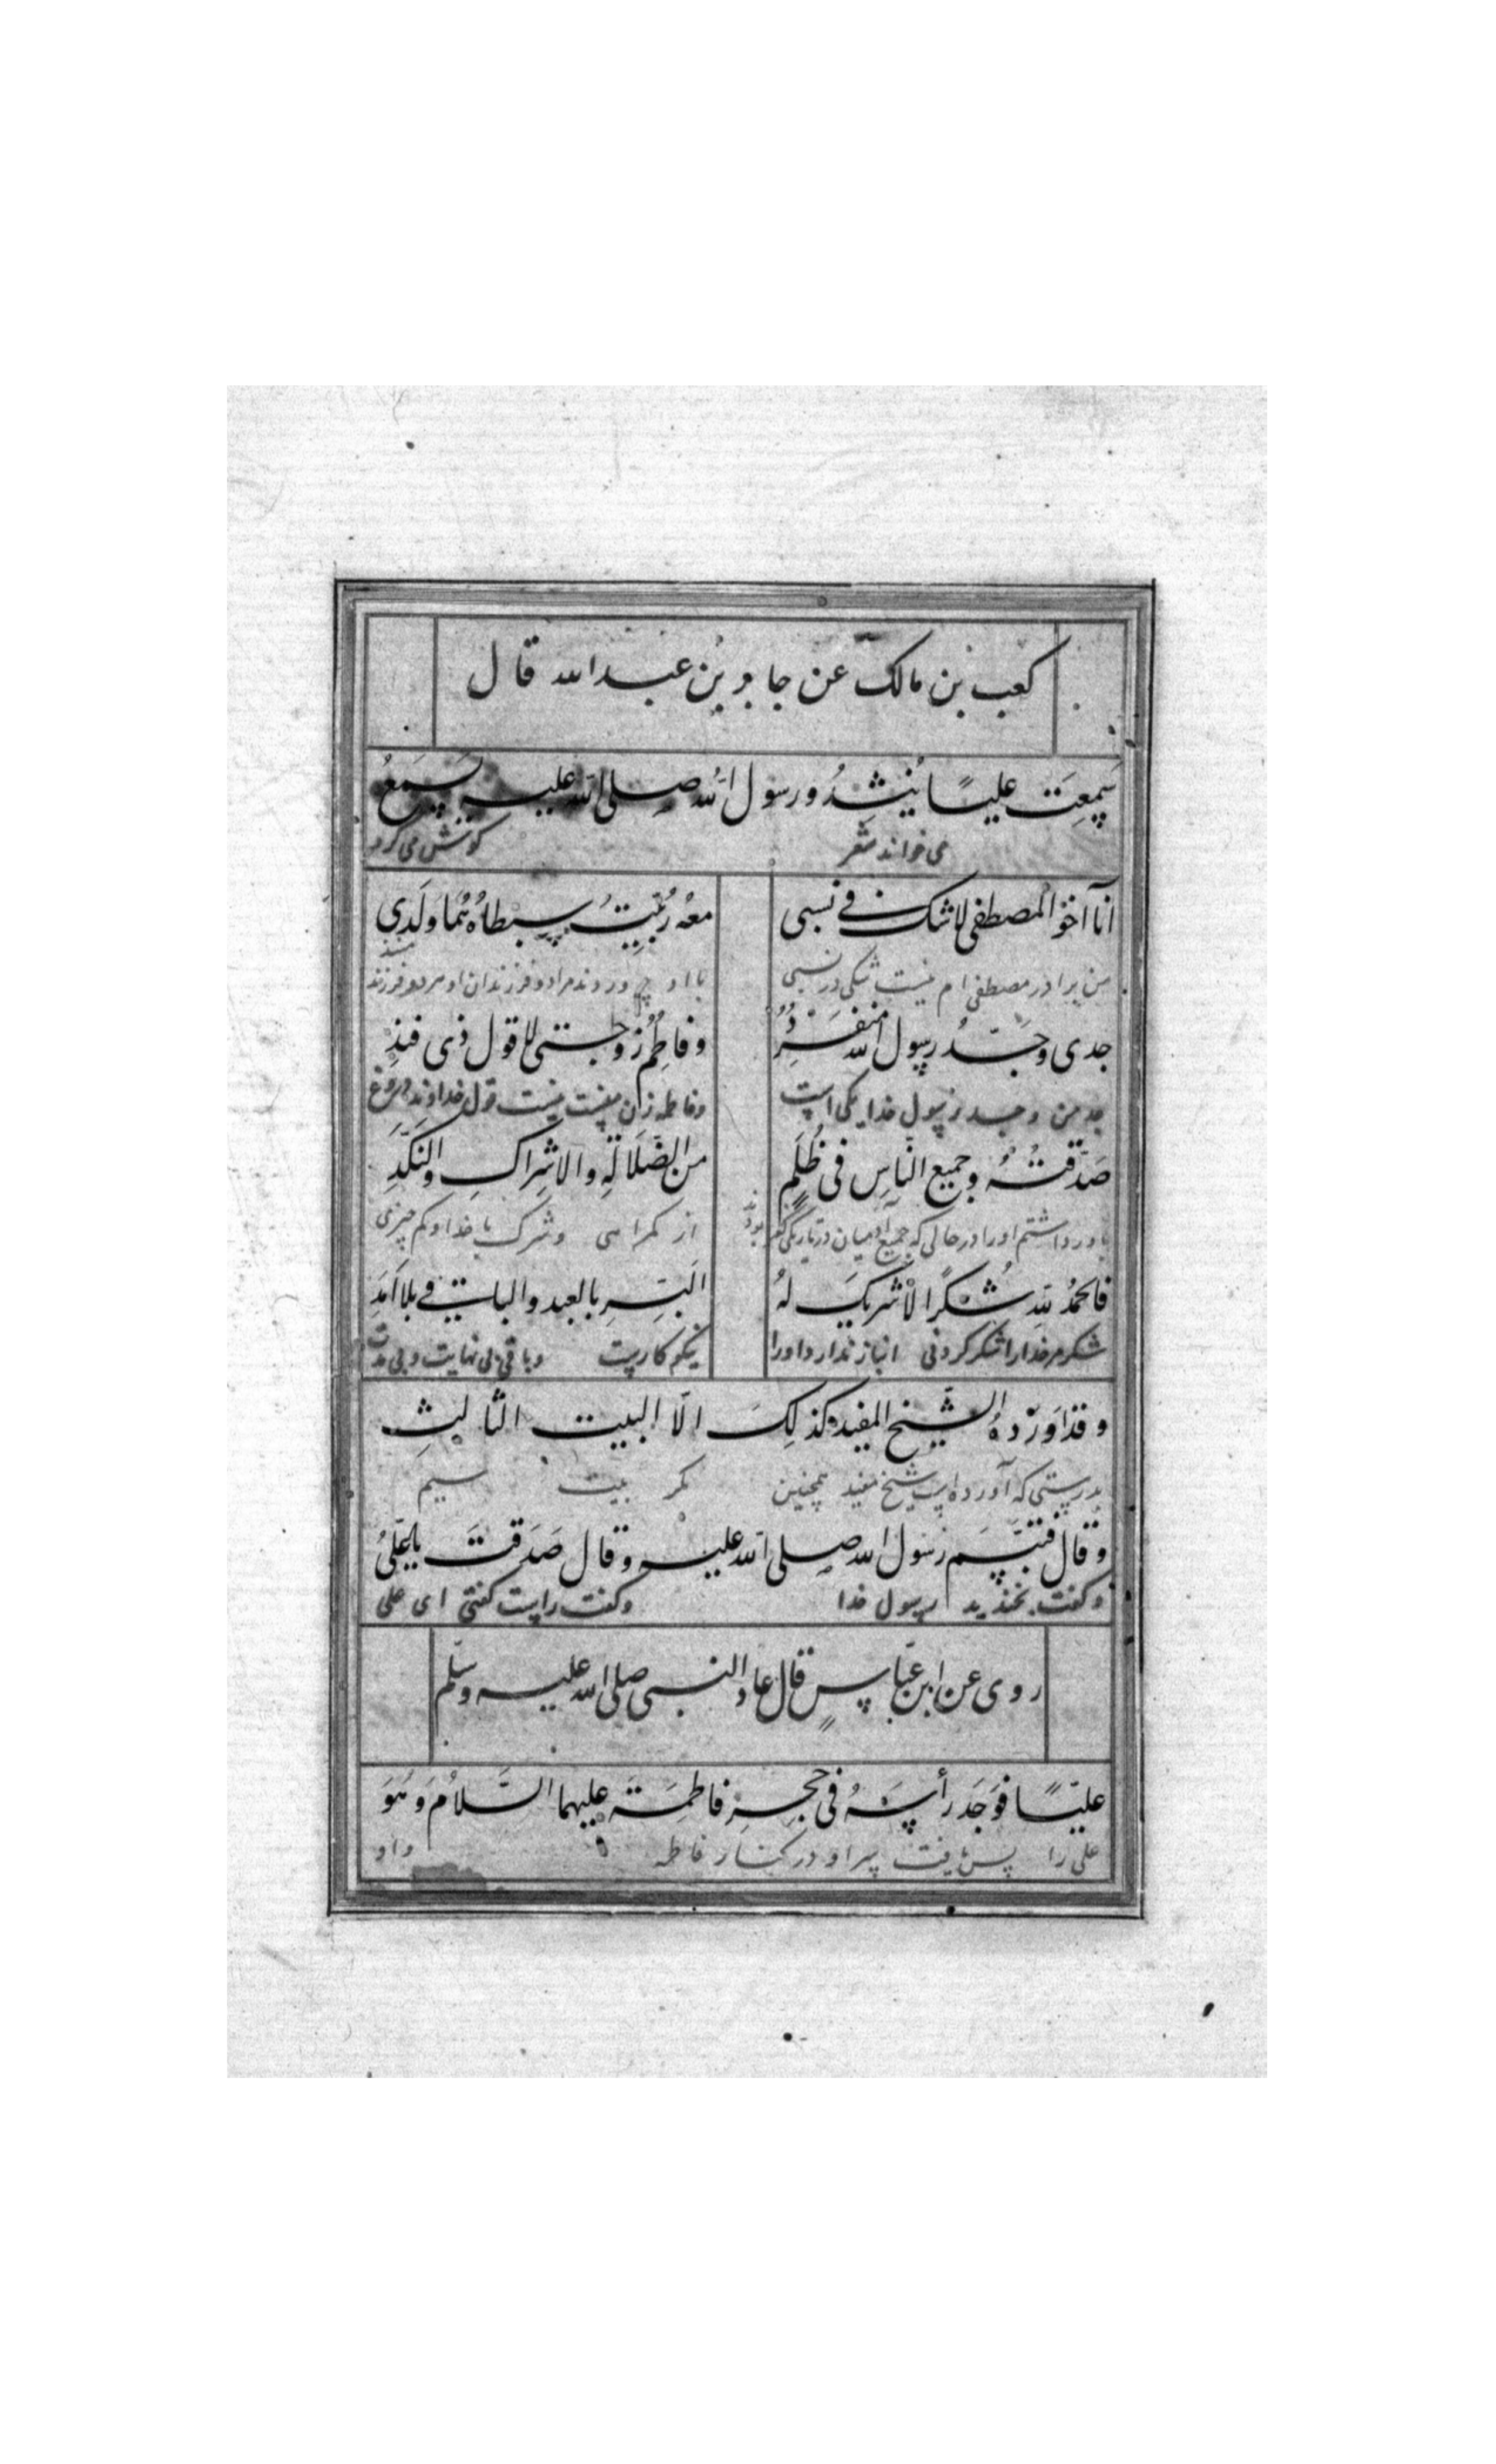 کعب بن مالک عن جابر بن عبد الله قال
سَمِعتَ علیًا یُنشِدُ و رسول اللّه صلی اللّه علیه یَسمَعُ
می خواند شعر گوش می کرد
اَنَا اَخُو المصطفی لا شک فی نسبی معهُ رُبّیتُ سِبطاهُ هُما وَلَدِی
من برادر مصطفی ام نیست شکی در نسبی با او پروردند مرا و دو فرزندان او هر دو فرزند منند
جدی و جَدُّ رسول اللّه مُنفَرِدٌ و فاطِمُ زوجتی لا قول ذی فَنَدِ
جد من و جد رسول خدا یکی است و فاطمه زن منست نیست قول خداوند دروغ
صَدَّقتُهُ و جمیع النّاسِ فی ظُلَمٍ من الضَّلالَةِ والاِشراکِ والنَّکَدِ
باور داشتم او را در حالی که جمیع آدمیان در تاریکی کفر بودند از گمراهی و شرک با خدا و کم چیزی
فالحمدُ للّه شُکرًا لا شریکَ لهُ اَلبَرِّ بالعبد والباقی بلا اَمَدِ
شکر مر خدا را شکر کردنی انباز ندارد او را نیکو کارست و باقی بی نهایت و بی مدت
و قد اَورَدهُ الشّیخ المفید کذلِکَ الّا البیت الثّالِثِ
بدرستی که آورده است شیخ مفید همچنین مگر بیت سیم
و قال فتبسَّمَ رسول اللّه صلی اللّه علیه و قال صَدَقتَ یا عَلِیُّ
و گفت بخندید رسول خدا و گفت راست گفتی ای علی
روی عن ابن عبّاسٍ قال عاد النبی صلی اللّه علیه و سلّم
علیًّا فَوَجَدَ رأسَهُ فی حِجرِ فاطِمَةَ علیهما السَّلامُ وَ هُوَ
علی را پس یافت سر او در کنار فاطمه و او